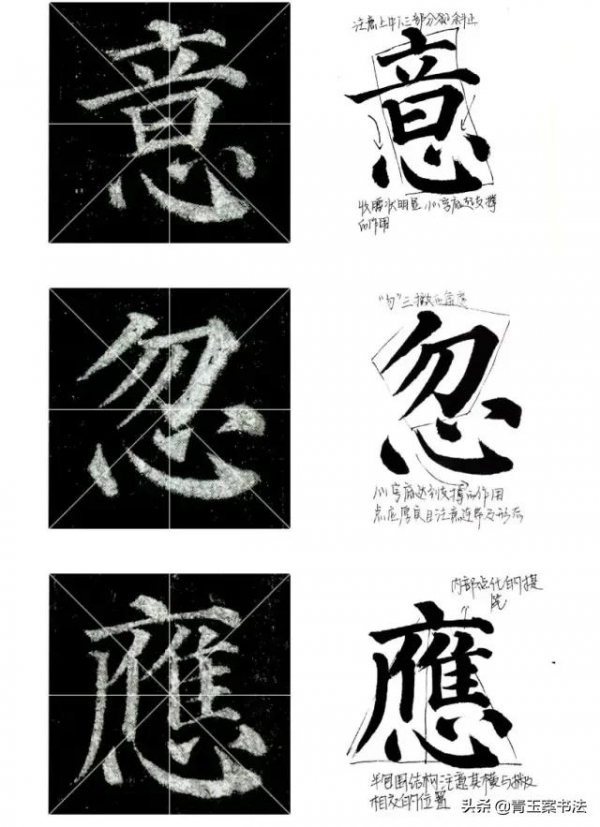 意
注意上中下三部分的斜正
意
收腰状明显,心字底起支撑
的作用
忽
"勿"三撇的角度
忽
心字底达到支撑的作用
点应厚实且注意连带及形态
應
内部点化的提
應
半包围结构注意其横与撇
相交的位置
头条 @青玉案书法